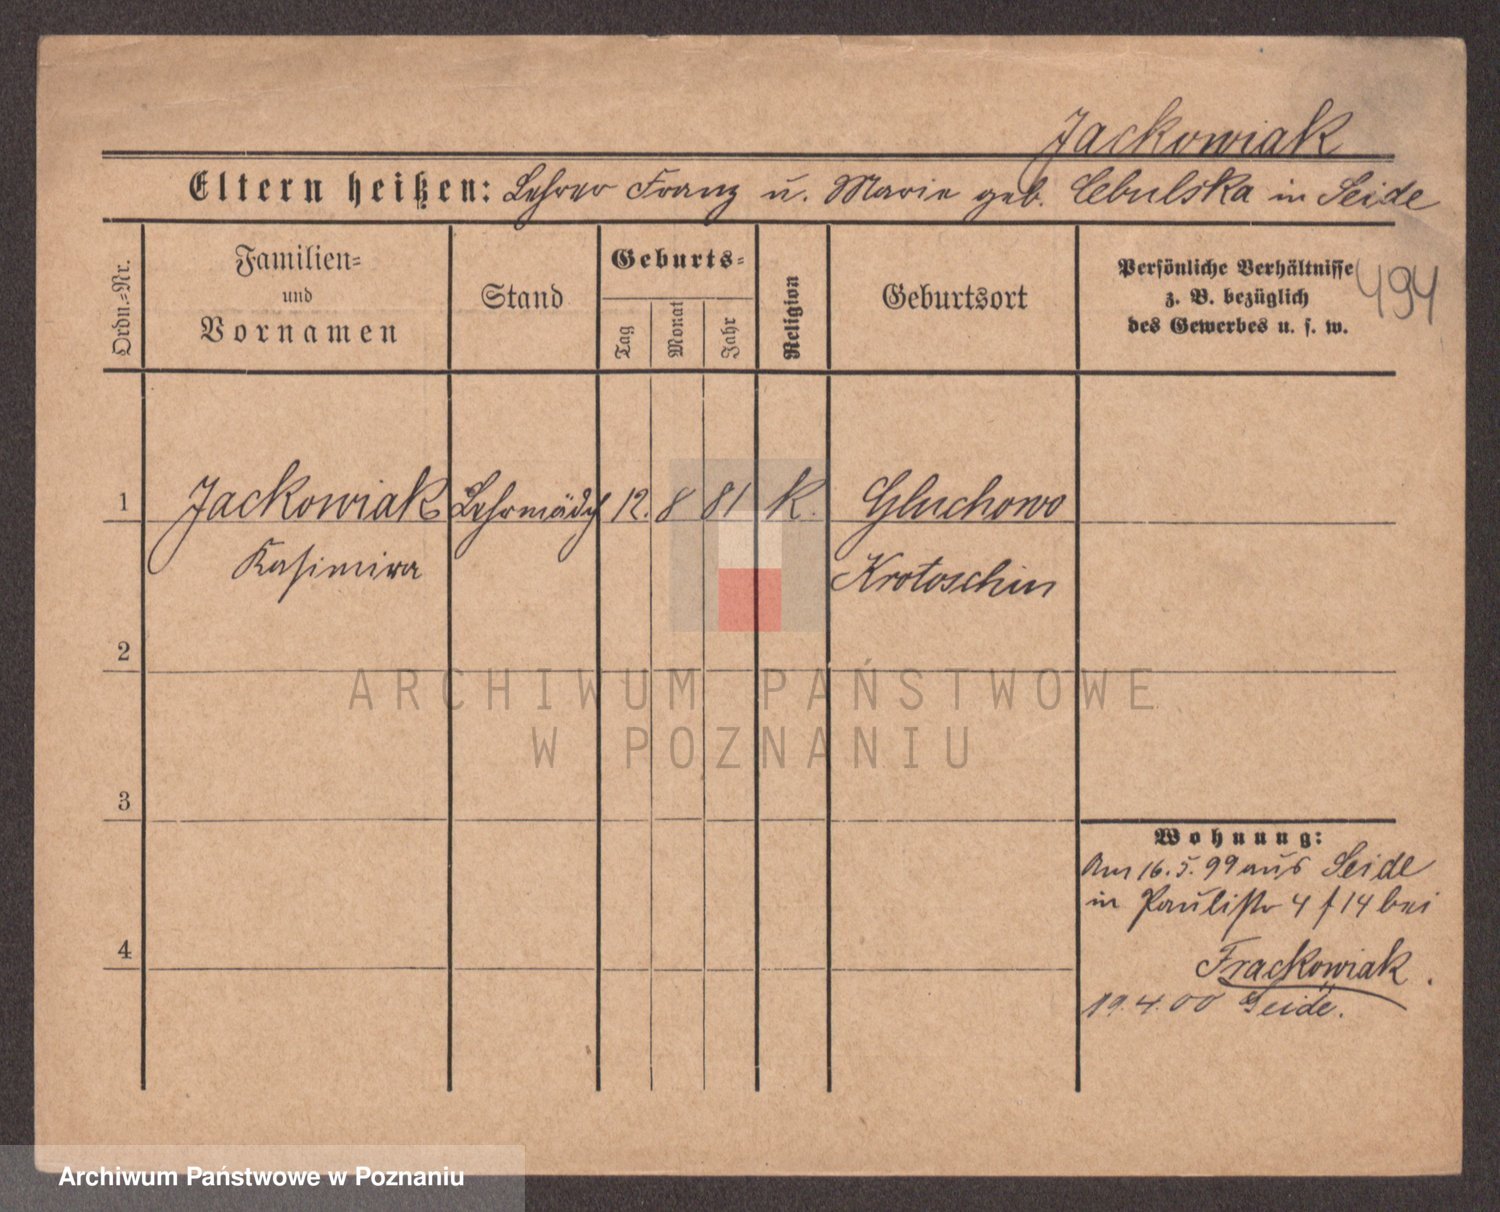 Jackowiak
Eltern heißen: Lehrer Franz u. Marie geb. Cebulska in Seide
494
Ordn.=Nr.
Familien=
und
Vornamen
Stand
Geburts=
Tag
Monat
Jahr
Religion
Geburtsort
Persönliche Verhältnisse
z. B. bezüglich
des Gewerbes u. s. w.
1 Jackowiak Lehrmädch 12. 8 81 k. Gluchowo
Kasimira Krotoschin
2
ARCHIWUM PAŃSTWOWE
W POZNANIU
3
Wohnung:
Am 16.5.99 aus Seide
in Paulistr 4 f 14 bei
Frackowiak.
4
19.4.00 Seide.
Archiwum Państwowe w Poznaniu